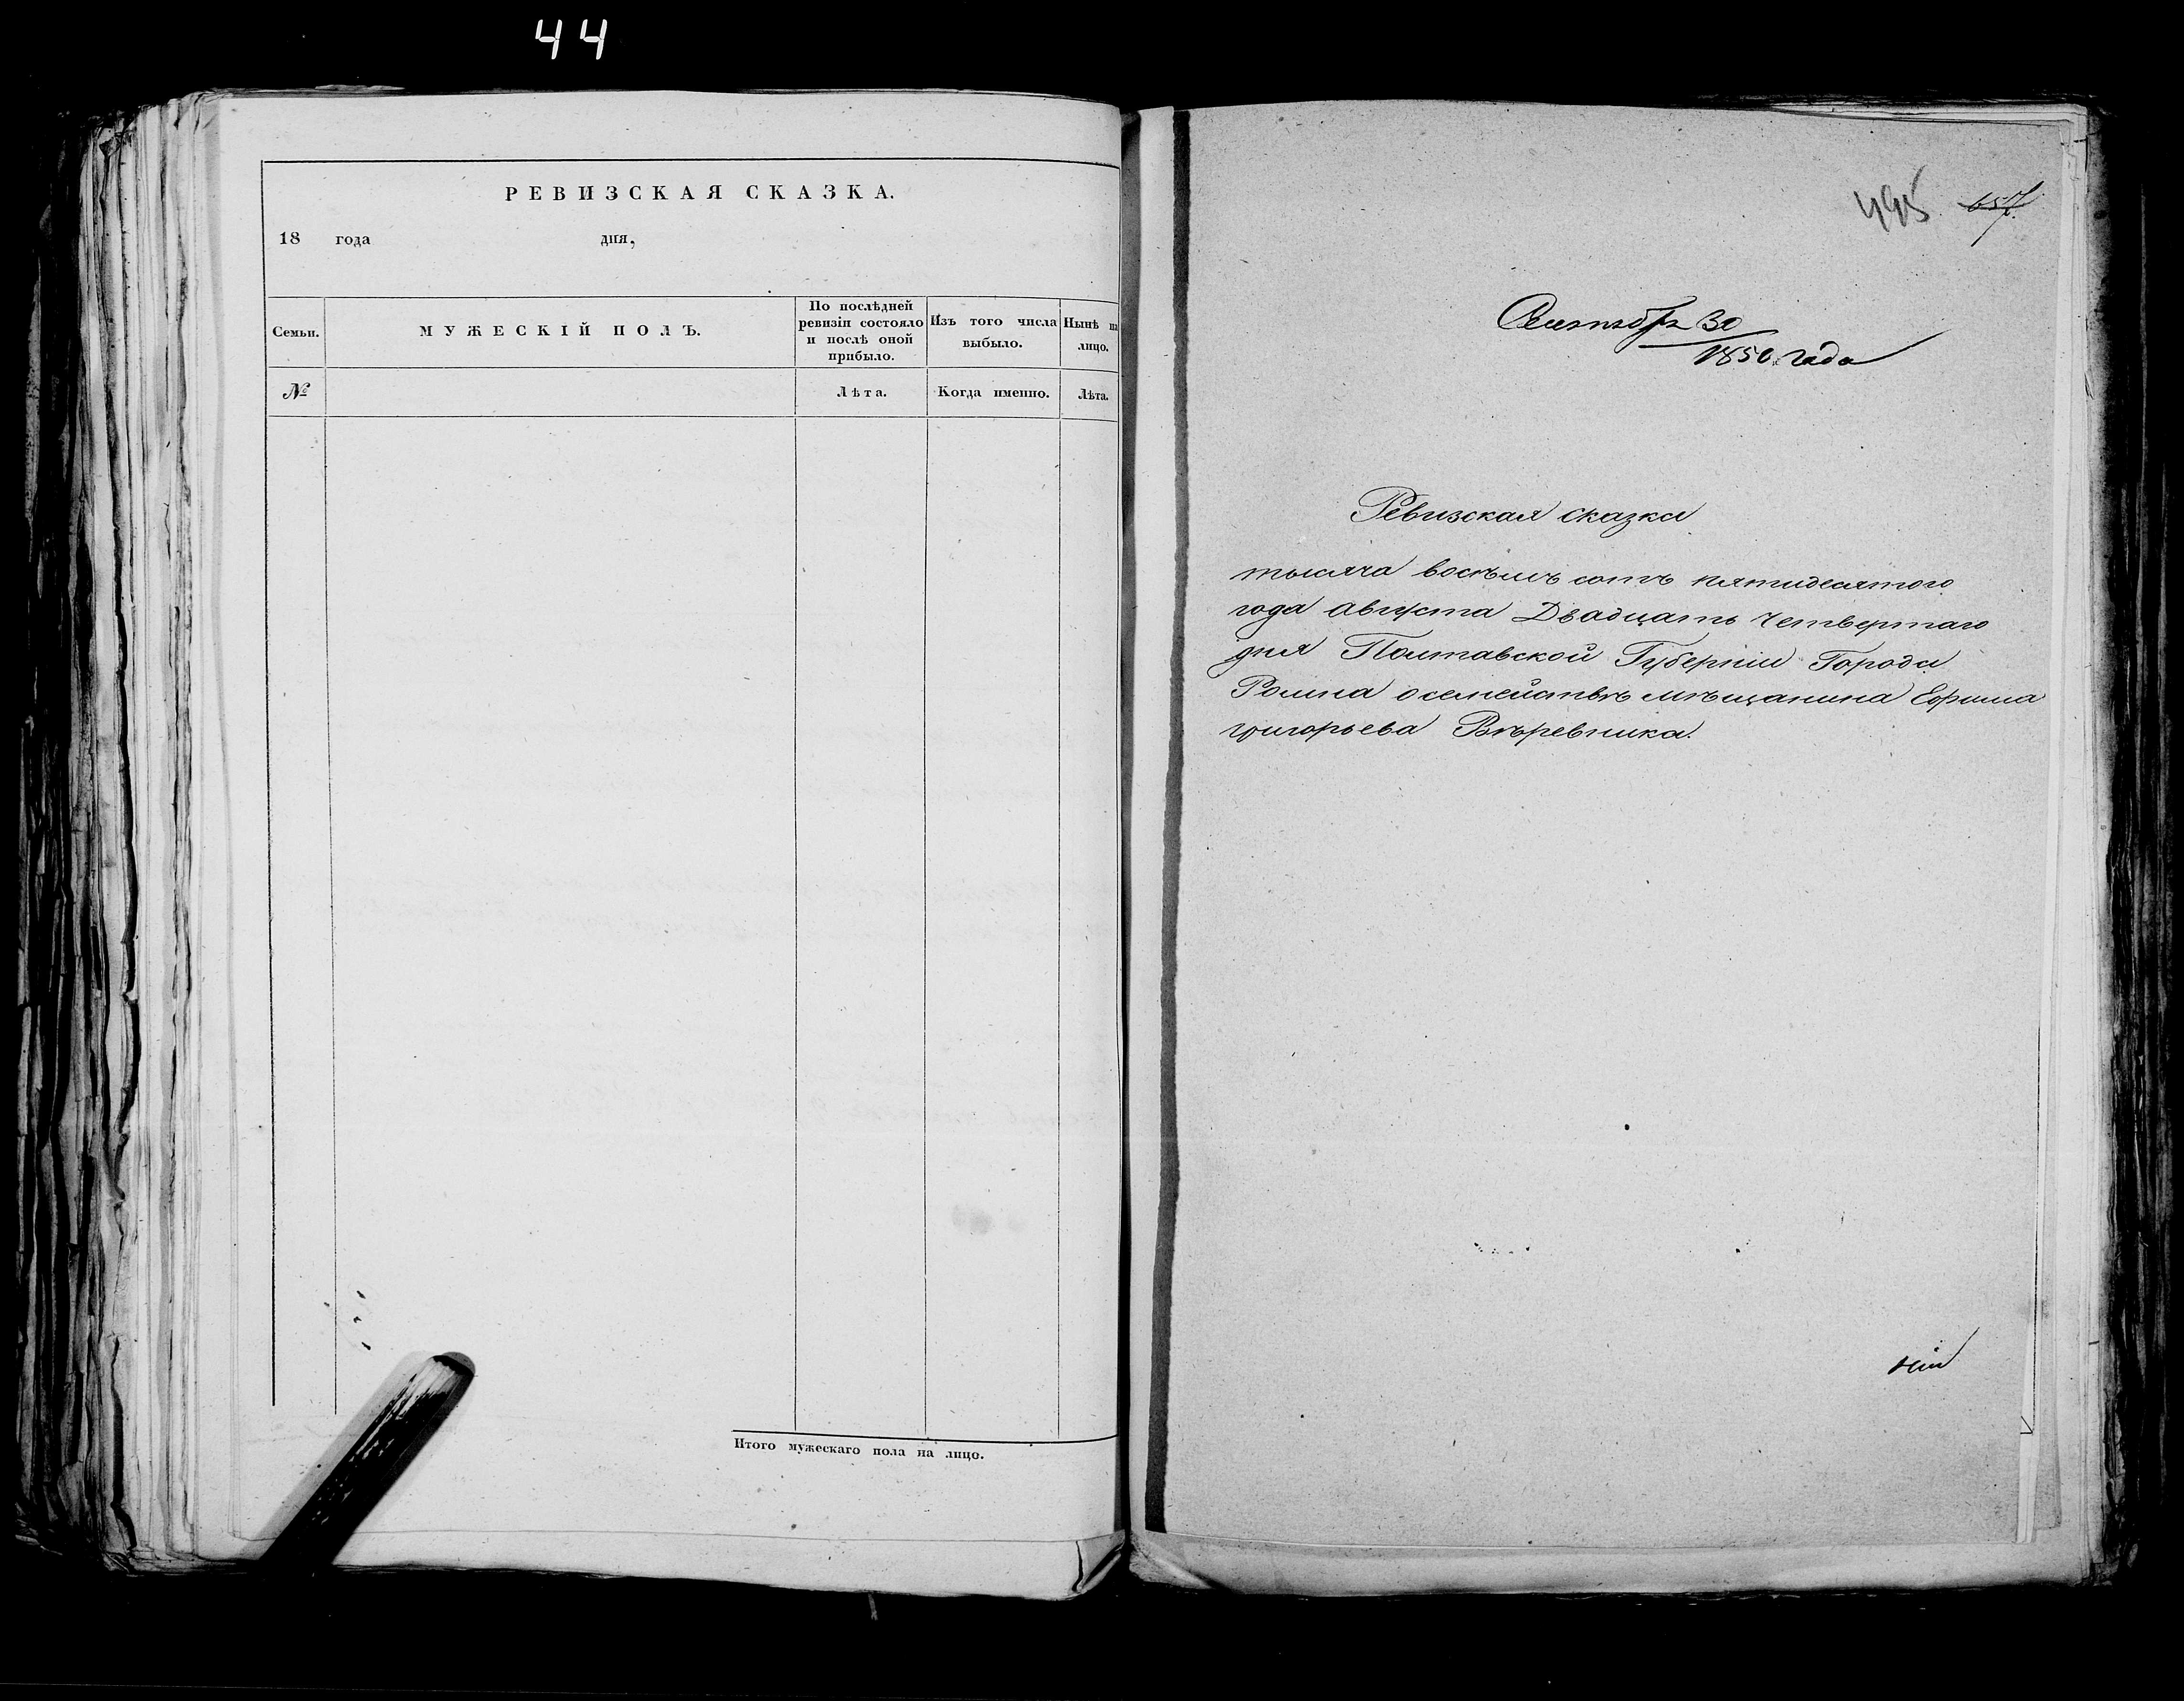 44
РЕВИЗСКАЯ СКАЗКА.
18 года дня,
Семьи.
МУЖЕСКІЙ ПОЛЪ.
По послѣдней
ревизіи состояло
и послѣ оной
прибыло.
Изъ того числа
выбыло.
Нынѣ на
лицо.
№
Лѣта.
Когда именно.
Лѣта.
Итого мужескаго пола на лицо.
495 657.
Сентября 30
1850 года
Ревизская сказка
тысяча восѣмъ сотъ пятидесятого
года августа Двадцать Четвертаго
дня Полтавской Губерніи Города
Ромна о семействѣ мѣщанина Ефима
григорьева Вѣревника.